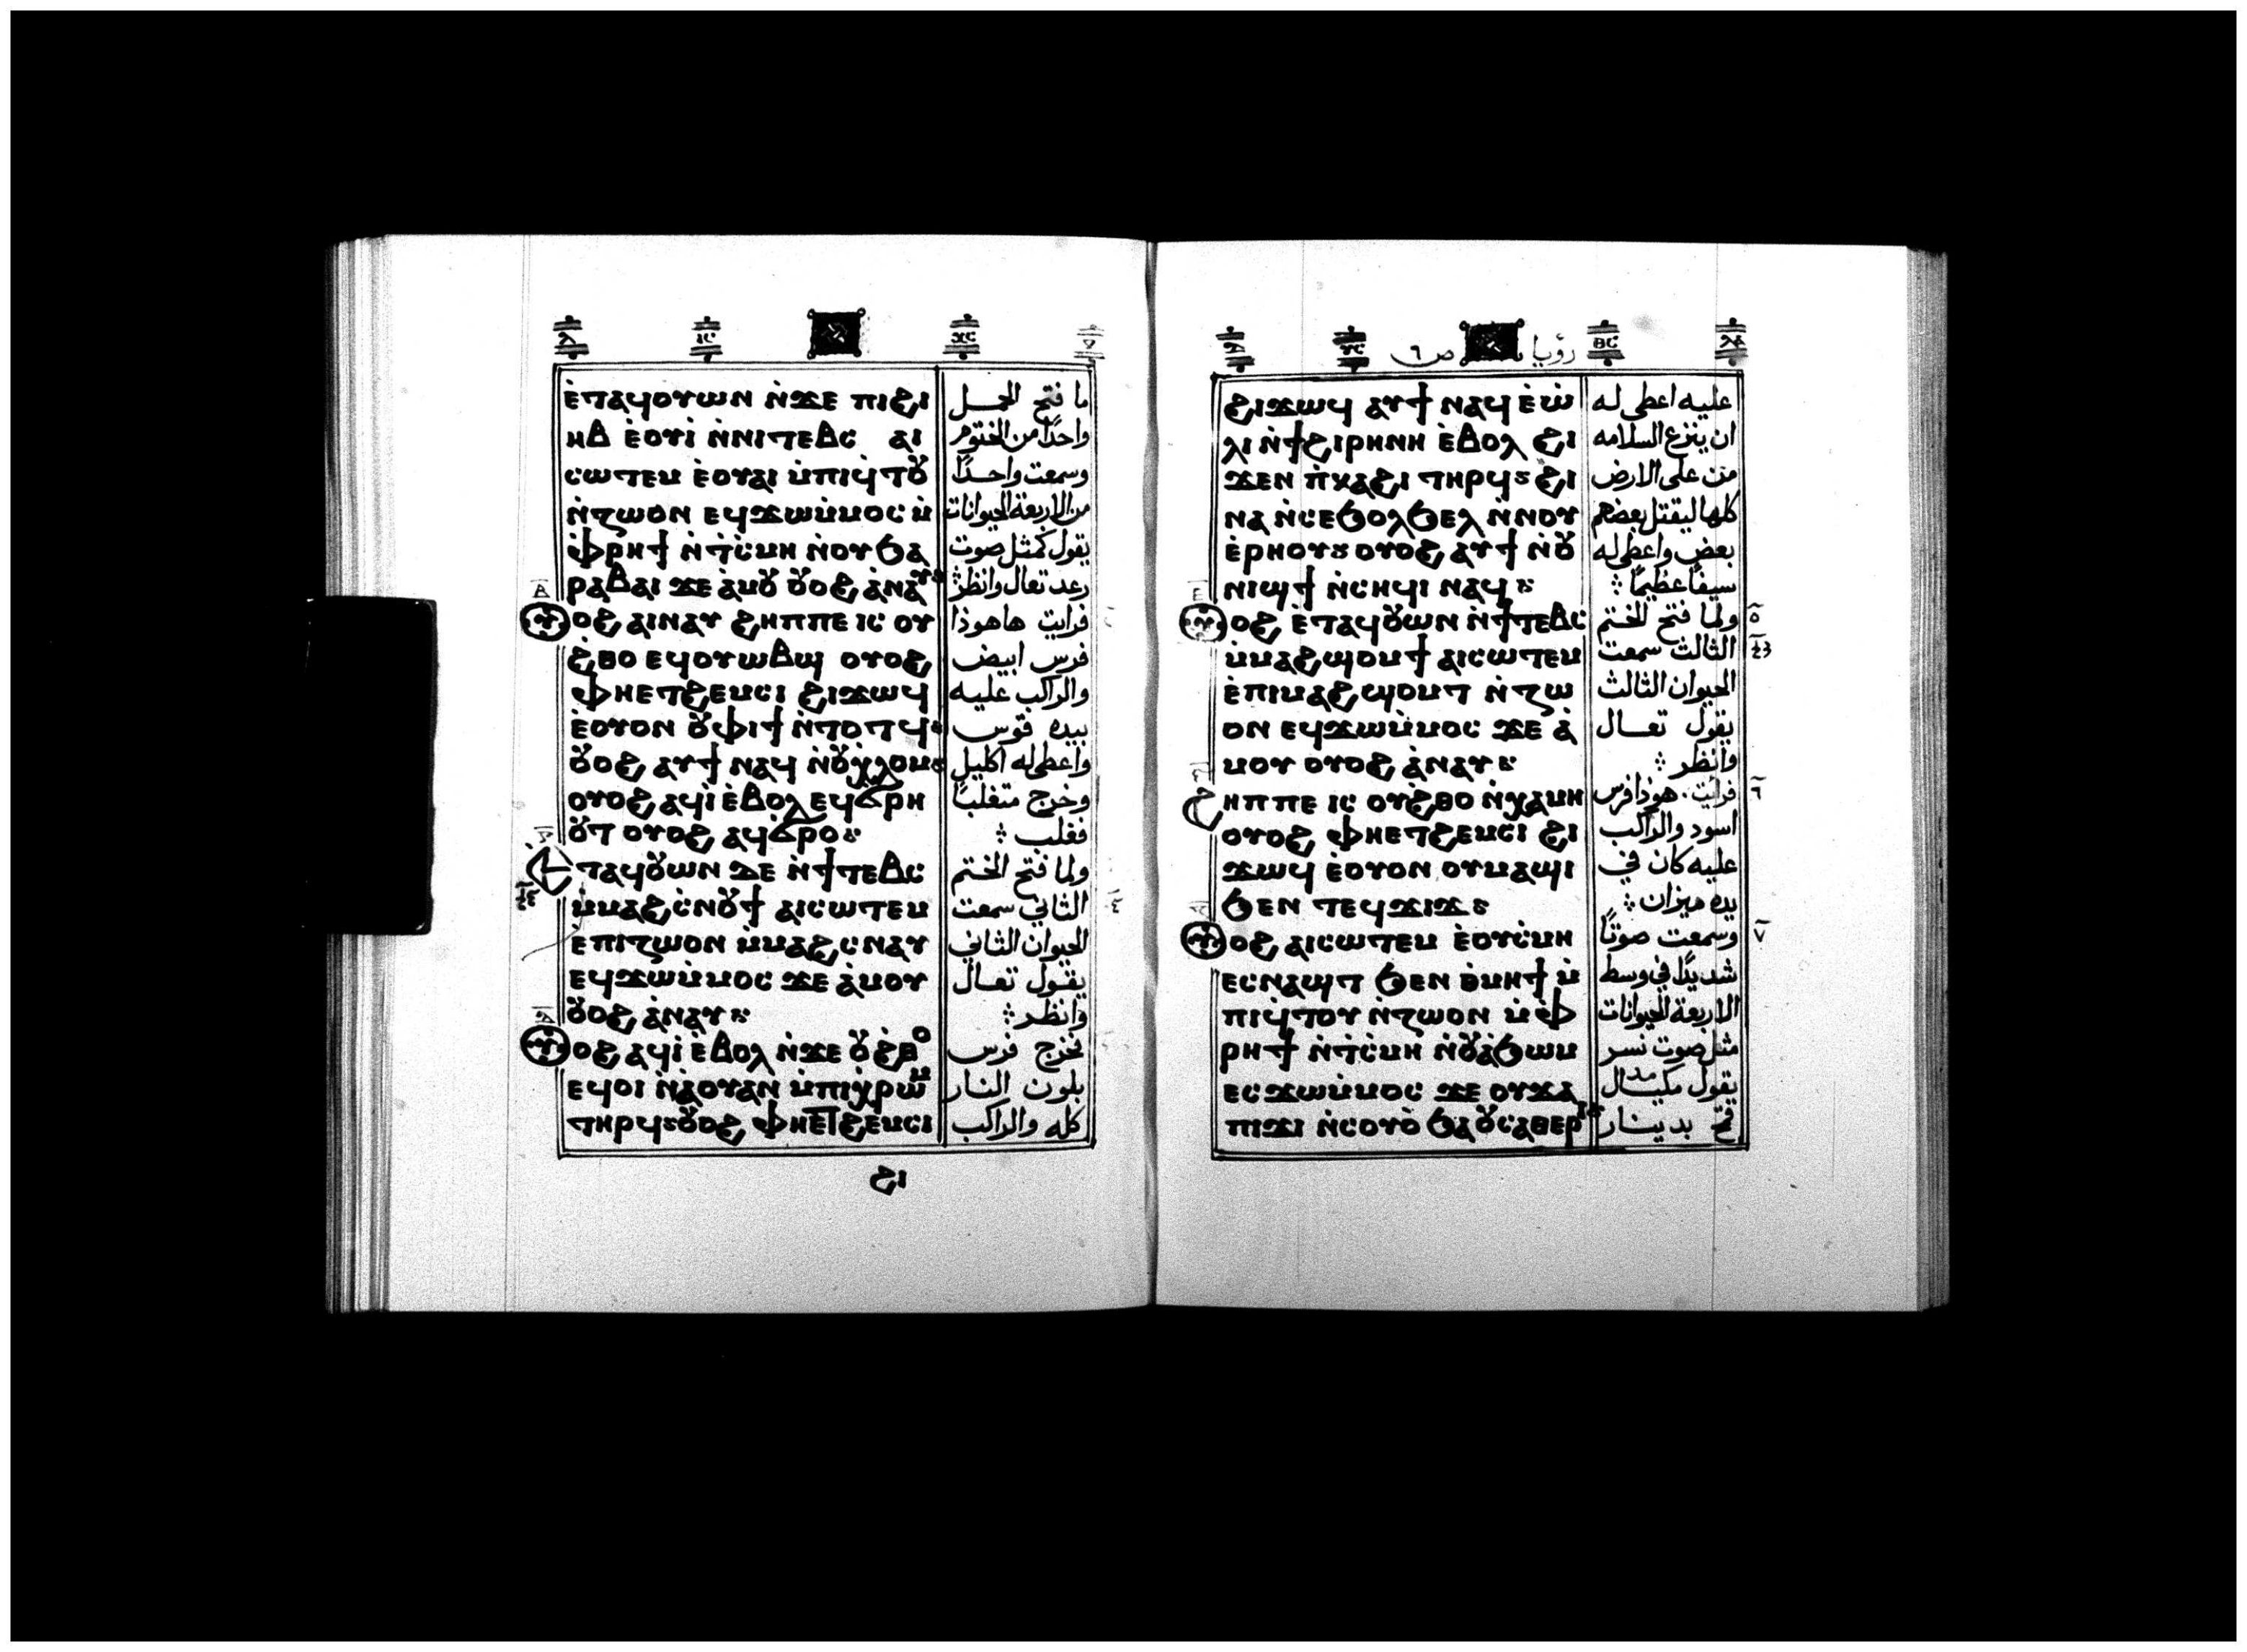 ⲓⲥ ⲭⲥ
ⲉ̀ⲧⲁϥⲟⲩⲱⲛ ⲛ̀ϫⲉ ⲡⲓϩⲓ
ⲏⲃ ⲉ̀ⲟⲩⲓ̀ ⲛ̀ⲛⲓⲧⲉⲃⲥ ⲁⲓ
ⲥⲱⲧⲉⲙ ⲉ̀ⲟⲩⲁⲓ ⲙ̀ⲡⲓϥ̀ⲧⲟⲩ
ⲛ̀ⲍⲱⲟⲛ ⲉϥϫⲱⲙ̀ⲙⲟⲥ ⲙ̀
ⲫ̀ⲣⲏϯ ⲛ̀ⲧ̀ⲥ̀ⲙⲏ ⲛ̀ⲟⲩϧⲁ
ⲣⲁⲃⲁⲓ ϫⲉ ⲁ̀ⲙⲟⲩ ⲟⲩⲟϩ ⲁ̀ⲛⲁⲩ
ⲟⲩⲟϩ ⲁⲓⲛⲁⲩ ϩⲏⲡⲡⲉ ⲓⲥ ⲟⲩ
ϩ̀ⲑⲟ ⲉϥⲟⲩⲱⲃϣ ⲟⲩⲟϩ
ⲫⲏⲉⲧϩⲉⲙⲥⲓ ϩⲓϫⲱϥ
ⲉ̀ⲟⲩⲟⲛ ⲟⲩⲫⲓϯ ⲛ̀ⲧⲟⲧϥ
ⲟⲩⲟϩ ⲁⲩϯ ⲛⲁϥ ⲛ̀ⲟⲩⲭ̀ⲗⲟⲙ
ⲟⲩⲟϩ ⲁϥⲓ̀ ⲉ̀ⲃⲟⲗ ⲉϥϭ̀ⲣⲏ
ⲟⲩⲧ ⲟⲩⲟϩ ⲁϥϭ̀ⲣⲟ
ⲉⲧⲁϥⲟⲩⲱⲛ ⲇⲉ ⲛ̀ϯⲧⲉⲃⲥ
ⲙ̀ⲙⲁϩⲥ̀ⲛⲟⲩϯ ⲁⲓⲥⲱⲧⲉⲙ
ⲉ̀ⲡⲓⲍⲱⲟⲛ ⲙ̀ⲙⲁϩⲥⲛⲁⲩ
ⲉϥϫⲱⲙ̀ⲙⲟⲥ ϫⲉ ⲁ̀ⲙⲟⲩ
ⲟⲩⲟϩ ⲁ̀ⲛⲁⲩ
ⲟⲩⲟϩ ⲁϥⲓ̀ ⲉ̀ⲃⲟⲗ ⲛ̀ϫⲉ ⲟⲩϩ̀ⲑⲟ
ⲉϥⲟⲓ ⲛ̀ⲁⲟⲩⲁⲛ ⲙ̀ⲡⲓⲭ̀ⲣⲱⲙ
ⲧⲏⲣϥ ⲟⲩⲟϩ ⲫⲏⲉⲧϩⲉⲙⲥⲓ
ϩⲓ
ما فتح الحمل
واحدًا من الختوم
وسمعت واحدًا
من الاربعة الحيوانات
يقول كمثل صوت
رعد تعال وانظر
فرايت هاهوذا
فرس ابيض
والراكب عليه
بيده قوس
واعطى له اكليل
وخرج متغلبًا
فغلب
ولما فتح الختم
الثاني سمعت
الحيوان الثاني
يقول تعال
وانظر
فخرج فرس
بلون النار
كله والراكب
ⲩⲥ ⲑⲥ
رؤيا ص ٦
ϩⲓϫⲱϥ ⲁⲩϯ ⲛⲁϥ ⲉ̀ⲱ̀
ⲗⲓ ⲛ̀ϯϩⲓⲣⲏⲛⲏ ⲉ̀ⲃⲟⲗ ϩⲓ
ϫⲉⲛ ⲡ̀ⲕⲁϩⲓ ⲧⲏⲣϥ ϩⲓ
ⲛⲁ ⲛ̀ⲥⲉϧⲟⲗϧⲉⲗ ⲛ̀ⲛⲟⲩ
ⲉ̀ⲣⲏⲟⲩ ⲟⲩⲟϩ ⲁⲩϯ ⲛ̀ⲟⲩ
ⲛⲓϣϯ ⲛ̀ⲥⲏϥⲓ ⲛⲁϥ
ⲟⲩⲟϩ ⲉ̀ⲧⲁϥⲟⲩⲱⲛ ⲛ̀ϯⲧⲉⲃⲥ
ⲙ̀ⲙⲁϩϣⲟⲙϯ ⲁⲓⲥⲱⲧⲉⲙ
ⲉ̀ⲡⲓⲙⲁϩϣⲟⲙⲧ ⲛ̀ⲍⲱ
ⲟⲛ ⲉϥϫⲱⲙ̀ⲙⲟⲥ ϫⲉ ⲁ̀
ⲙⲟⲩ ⲟⲩⲟϩ ⲁ̀ⲛⲁⲩ
ϩⲏⲡⲡⲉ ⲓⲥ ⲟⲩϩ̀ⲑⲟ ⲛ̀ⲭⲁⲙⲏ
ⲟⲩⲟϩ ⲫⲏⲉⲧϩⲉⲙⲥⲓ ϩⲓ
ϫⲱϥ ⲉ̀ⲟⲩⲟⲛ ⲟⲩⲙⲁϣⲓ
ϧⲉⲛ ⲧⲉϥϫⲓϫ
ⲟⲩⲟϩ ⲁⲓⲥⲱⲧⲉⲙ ⲉ̀ⲟⲩⲥ̀ⲙⲏ
ⲉⲥⲛⲁϣⲧ ϧⲉⲛ ⲑ̀ⲙⲏϯ ⲙ̀
ⲡⲓϥ̀ⲧⲟⲩ ⲛ̀ⲍⲱⲟⲛ ⲙ̀ⲫ̀
ⲣⲏϯ ⲛ̀ⲧ̀ⲥ̀ⲙⲏ ⲛ̀ⲟⲩⲁ̀ϧⲱⲙ
ⲉⲥϫⲱⲙ̀ⲙⲟⲥ ϫⲉ ⲟⲩϫⲁ
ⲡⲓϫⲓ ⲛ̀ⲥⲟⲩⲟ̀ ϧⲁ ⲟⲩⲥⲁⲑⲉⲣⲓ
عليه اعطى له
ان ينزع السلامه
من على الارض
كلها ليقتل بعضهم
بعض واعطى له
سيفًا عظيمًا
ولما فتح الختم
الثالث سمعت
الحيوان الثالث
يقول تعال
وانظر
فرايت هوذا فرس
اسود والراكب
عليه كان في
يده ميزان
وسمعت صوتًا
شديدًا في وسط
الاربعة الحيوانات
مثل صوت نسر
يقول مكيال
قمح بدينار